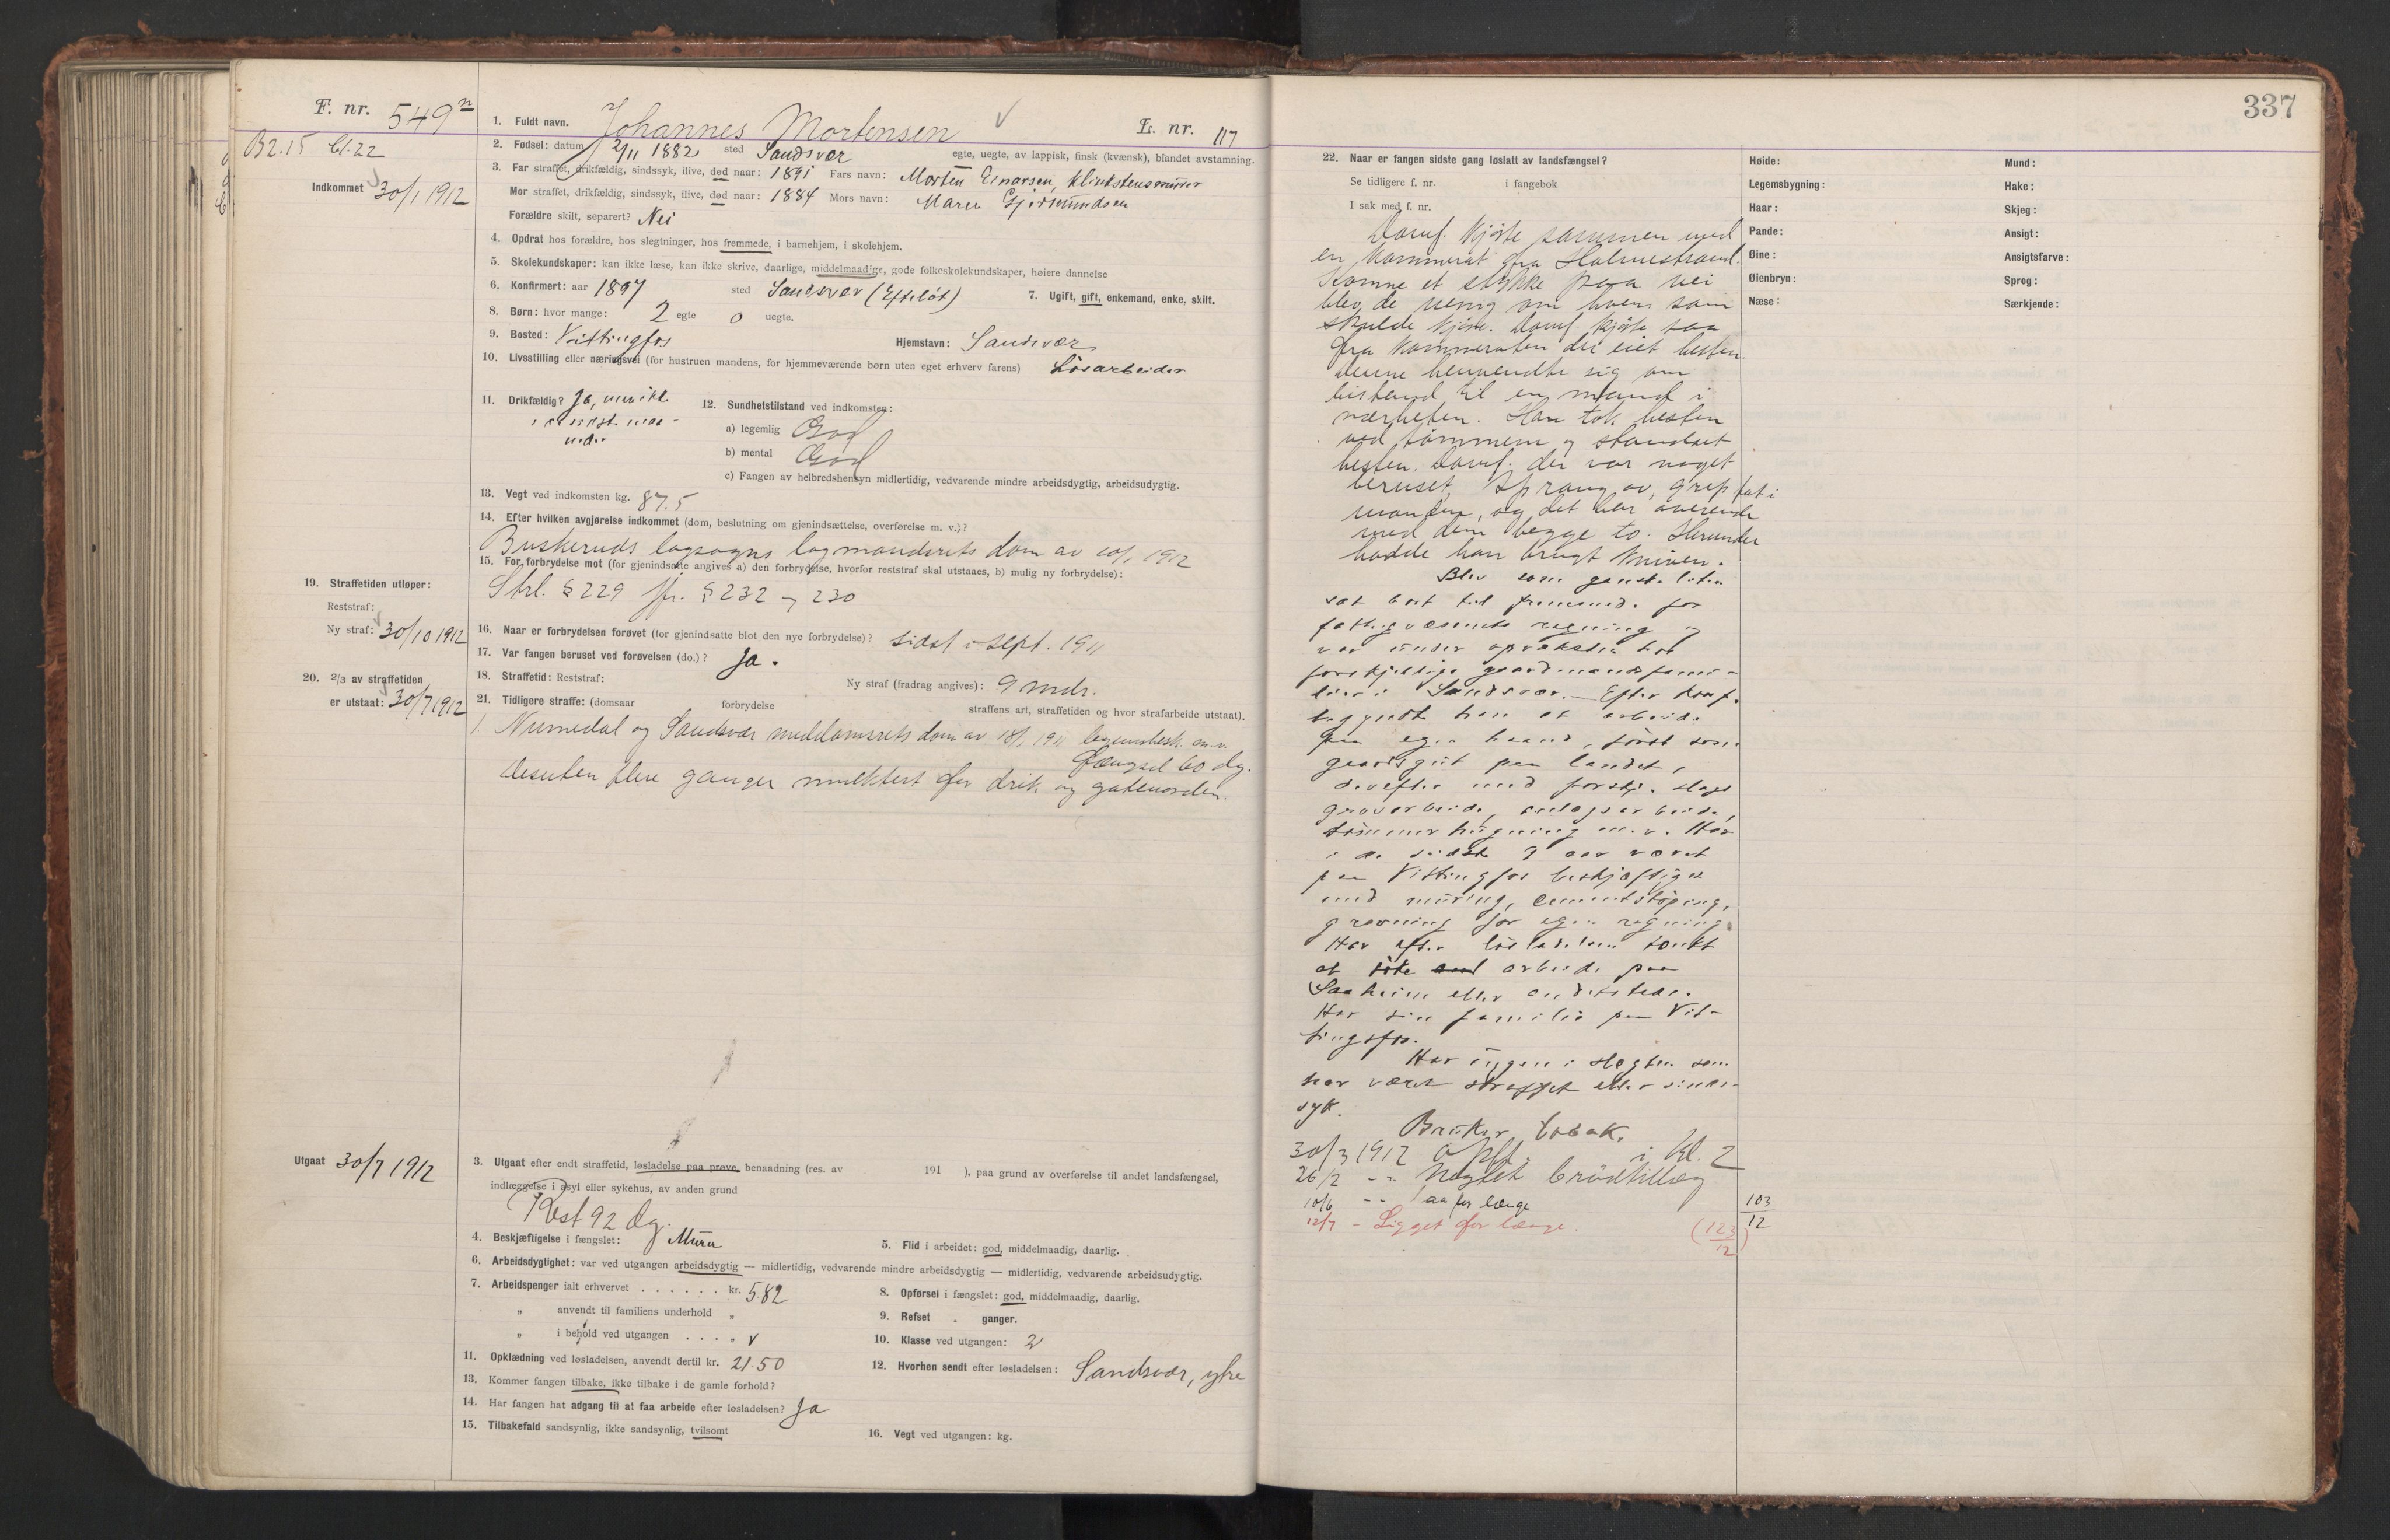 F. nr. 549
B2.15 Cl.22
Indkommet 30/1 1912
1. Fuldt navn. Johannes Mortensen
L. nr. 117
2. Fødsel: datum 2/11 1882 sted Sandsvær egte, uegte, av lappisk, finsk (kvænsk), blandet avstamning.
3. Far straffet, drikfældig, sindssyk, ilive, død naar: 1891 Fars navn: Morten Einarsen,
Mor straffet, drikfældig, sindssyk, ilive, død naar: 1884 Mors navn: Maren Gjermundsen
Forældre skilt, separert? Nei
4. Opdrat hos forældre, hos slegtninger, hos fremmede, i barnehjem, i skolehjem.
5. Skolekundskaper: kan ikke læse, kan ikke skrive, daarlige, middelmaadige, gode folkeskolekundskaper, høiere dannelse
6. Konfirmert: aar 1897 sted Sandsvær (Efteløt) 7. Ugift, gift, enkemand, enke, skilt.
8. Børn: hvor mange: 2 egte 0 uegte.
9. Bosted: Vittingfos Hjemstavn: Sandsvær
10. Livsstilling eller næringsvei (for hustruen mandens, for hjemmeværende børn uten eget erhverv farens) Løsarbeider
11. Drikfældig? Ja, men ikke
i de sidste maa-
neder
12. Sundhetstilstand ved indkomsten:
a) legemlig God
b) mental God
c) Fangen av helbredshensyn midlertidig, vedvarende mindre arbeidsdygtig, arbeidsudygtig.
13. Vegt ved indkomsten kg. 87.5
14. Efter hvilken avgjørelse indkommet (dom, beslutning om gjenindsættelse, overførelse m. v.)?
Buskeruds lagsogns lagmandsrets dom av 20/1 1912
15. For forbrydelse mot (for gjenindsatte angives a) den forbrydelse, hvorfor reststraf skal utstaaes, b) mulig ny forbrydelse):
Strl. § 229 jfr. § 232 og 230
16. Naar er forbrydelsen forøvet (for gjenindsatte blot den nye forbrydelse)? sidst i sept. 1911
17. Var fangen beruset ved forøvelsen (do.)? Ja.
18. Straffetid: Reststraf: Ny straf (fradrag angives): 9 mdr.
19. Straffetiden utløper:
Reststraf:
Ny straf: 30/10 1912
20. 2/3 av straffetiden
er utstaat: 30/7 1912
21. Tidligere straffe: (domsaar forbrydelse straffens art, straffetiden og hvor strafarbeide utstaat).
1. Numedal og Sandsvær meddomsrets dom av 18/1 1911 legemsbesk. m.v.
Fængsel 60 dg.
Desuten flere ganger mulktert for drik og gateuorden.
Utgaat 30/7 1912
3. Utgaat efter endt straffetid, løsladelse paa prøve, benaadning (res. av 191 ), paa grund av overførelse til andet landsfængsel,
indlæggelse i asyl eller sykehus, av anden grund
Rest 92 dg.
4. Beskjæftigelse i fængslet: Murer 5. Flid i arbeidet: god, middelmaadig, daarlig.
6. Arbeidsdygtighet: var ved utgangen arbeidsdygtig — midlertidig, vedvarende mindre arbeidsdygtig — midlertidig, vedvarende arbeidsudygtig.
7. Arbeidspenger ialt erhvervet . . . . . . kr. 5.82 8. Opførsel i fængslet: god, middelmaadig, daarlig.
" anvendt til familiens underhold " 9. Refset . ganger.
" i behold ved utgangen . . . " v 10. Klasse ved utgangen: 2
11. Opklædning ved løsladelsen, anvendt dertil kr. 21.50 12. Hvorhen sendt efter løsladelsen: Sandsvær, ytre
13. Kommer fangen tilbake, ikke tilbake i de gamle forhold?
14. Har fangen hat adgang til at faa arbeide efter løsladelsen? Ja
15. Tilbakefald sandsynlig, ikke sandsynlig, tvilsomt 16. Vegt ved utgangen: kg.
337
22. Naar er fangen sidste gang løslatt av landsfængsel?
Se tidligere f. nr. i fangebok
I sak med f. nr.
Domf. kjørte sammen med
en kammerat fra Holmestrand.
Komne et stykke paa vei
blev de uenig om hvem som
skulde kjøre. Domf. kjørte saa
fra kammeraten der eiet hesten
denne henvendte sig om
bistand til en mand i
nærheten. Han tok hesten
ved tømmene og standset
hesten. Domf. der var noget
beruset, sprang av, grep fat i
manden, og det bar overende
med dem begge to. Herunder
hadde han brugt kniven.
Blev som ganske liten
sat bort til fremmede for
fattigvæsenets regning og
var under opvæksten hos
forskjellige gaardmandsfami-
lier i Sandsvær. Efter konf.
begyndte han at arbeide
paa egen haand, først som
gaardsgut paa landet,
derefter med forskj. slags
gravarbeide, anlægsarbeide,
tømmerhugning m.v. Har
i de sidste 9 aar været
paa Vittingfos beskjæftiget
med muring, cementstøping,
gravning for egen regning.
Har efter løsladelsen tænkt
at søke arbeide paa
Saaheim eller andetsteds.
Har sin familie paa Vit-
tingfos.
Har ingen i slegten som
har været straffet eller sinds-
syk.
Bruker tobak.
30/3 1912 Opfl. i kl. 2
26/2 -"- Nægtet brødtillæg
10/6 -"- for længe 103/12
12/7 - Ligget for længe. (123/12)
Høide:
Legemsbygning:
Haar:
Pande:
Øine:
Øienbryn:
Næse:
Mund:
Hake:
Skjeg:
Ansigt:
Ansigtsfarve:
Sprog:
Særkjende: